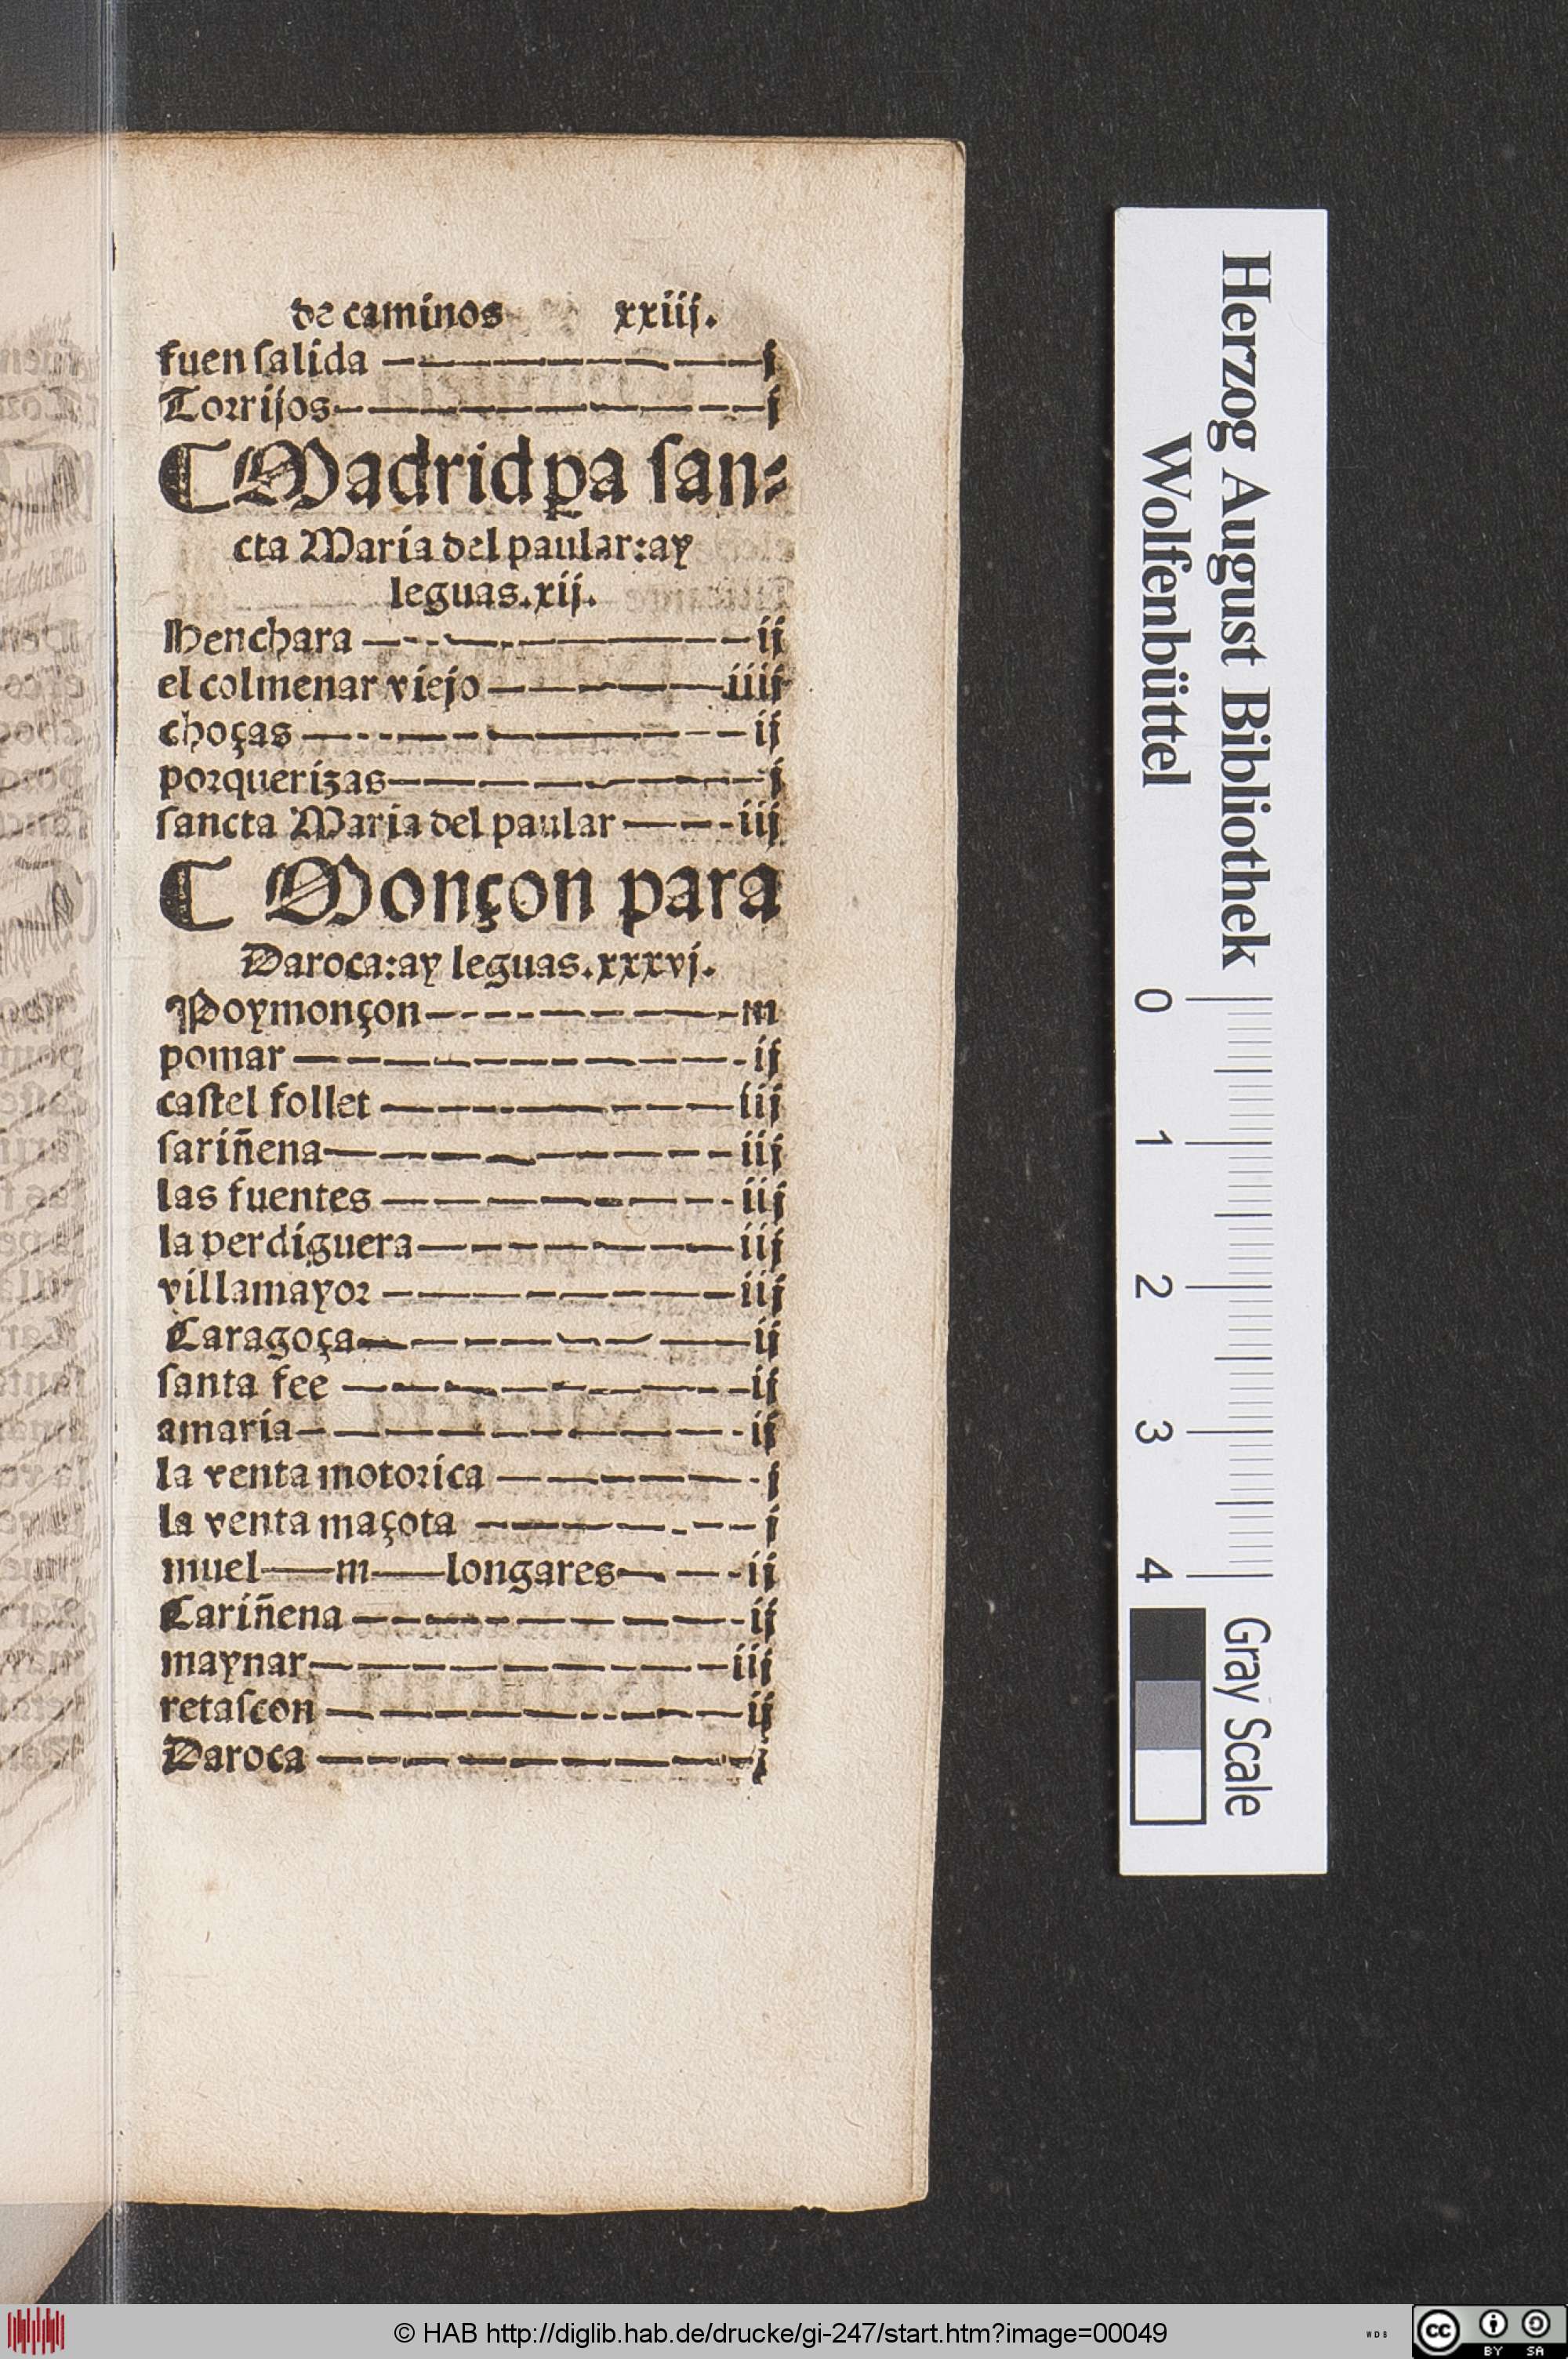 de caminos xxiij.
fuen ſalida — j
Torrijos — j
¶ Madrid pa ſan-
cta Maria del paular: ay
leguas. xij.
Henchara — ij
el colmenar viejo — iiij
choças — ij
porquerizas — j
ſancta Maria del paular — iij
¶ Monçon para
Daroca: ay leguas. xxxvj.
Poymonçon — m
pomar — ij
caſtel follet — iij
ſariñena — iij
las fuentes — iij
la perdiguera — iij
villamayor — iij
Caragoça — ij
ſanta fee — ij
amaria — ij
la venta motorica — j
la venta maçota — j
muel — m — longares — ij
Cariñena — ij
maynar — iij
retaſcon — ij
Daroca — j
Herzog August Bibliothek
Wolfenbüttel
0 1 2 3 4
Gray Scale
© HAB http://diglib.hab.de/drucke/gi-247/start.htm?image=00049
WDB
cc BY SA